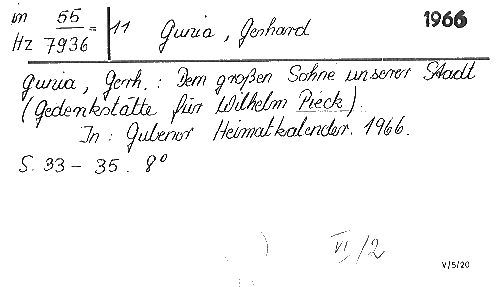 in 55
Hz 7936 = 11 Gunia, Gerhard 1966
Gunia, Gerh.: Dem großen Sohne unserer Stadt
(Gedenkstätte für Wilhelm Pieck).
In: Gubener Heimatkalender. 1966.
S. 33-35. 8°
VI/2
V/5/20